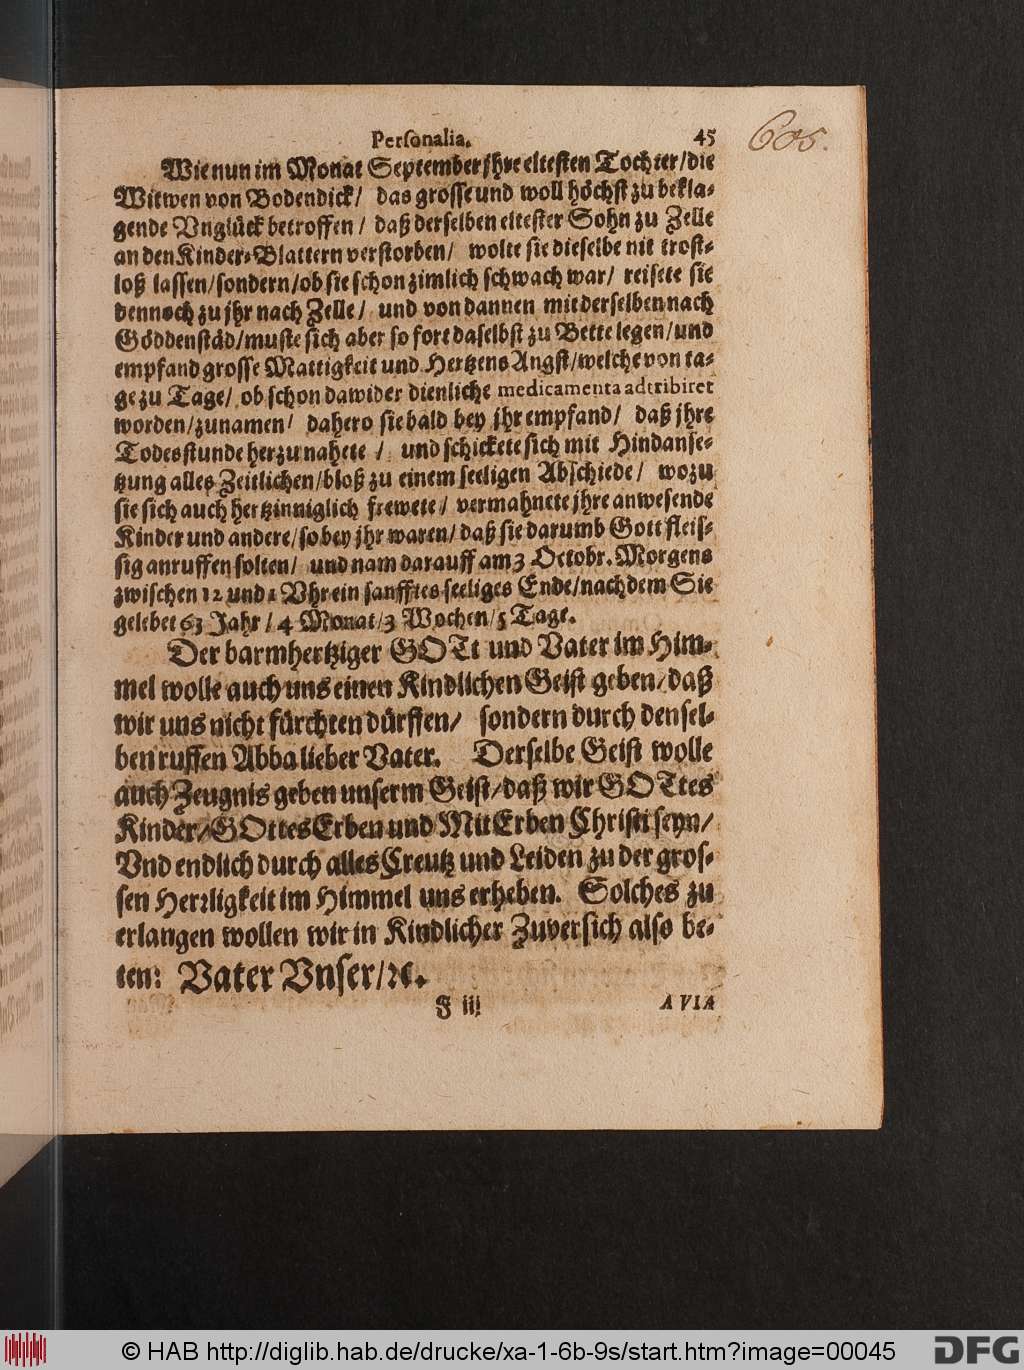 Personalia. 45 605.
Wie nun im Monat September jhre eltesten Tochter/die
Witwen von Bodendick/ das grosse und woll höchst zu bekla-
gende Vnglück betroffen/ daß derselben eltester Sohn zu Zelle
an den Kinder-Blattern verstorben/ wolte sie dieselbe nit trost-
loß lassen/sondern/ob sie schon zimlich schwach war/ reisete sie
dennoch zu jhr nach Zelle/ und von dannen mit derselben nach
Göddenståd/muste sich aber so fort daselbst zu Bette legen/und
empfand grosse Mattigkeit und Hertzens Angst/welche von ta-
ge zu Tage/ ob schon dawider dienliche medicamenta adtribiret
worden/zunamen/ dahero sie bald bey jhr empfand/ daß jhre
Todesstunde herzu nahete/ und schickete sich mit Hindanse-
tzung alles Zeitlichen/bloß zu einem seeligen Abschiede/ wozu
sie sich auch hertzinniglich frewete/ vermahnete jhre anwesende
Kinder und andere/so bey jhr waren/daß sie darumb Gott fleis-
sig anruffen solten/ und nam darauff am 3 Octobr. Morgens
zwischen 12 und 1 Vhr ein sanfftes seeliges Ende/nachdem Sie
gelebet 63 Jahr/4 Monat/3 Wochen/5 Tage.
Der barmhertziger GOTt und Vater im Him-
mel wolle auch uns einen Kindlichen Geist geben/daß
wir uns nicht fürchten dürffen/ sondern durch densel-
ben ruffen Abba lieber Vater. Derselbe Geist wolle
auch Zeugnis geben unserm Geist/daß wir GOTtes
Kinder/GOttes Erben und Mit Erben Christi seyn/
Vnd endlich durch alles Creutz und Leiden zu der gros-
sen Herꝛligkeit im Himmel uns erheben. Solches zu
erlangen wollen wir in Kindlicher Zuversich also be-
ten: Vater Vnser/ꝛc.
F iij AVIA
© HAB http://diglib.hab.de/drucke/xa-1-6b-9s/start.htm?image=00045 DFG